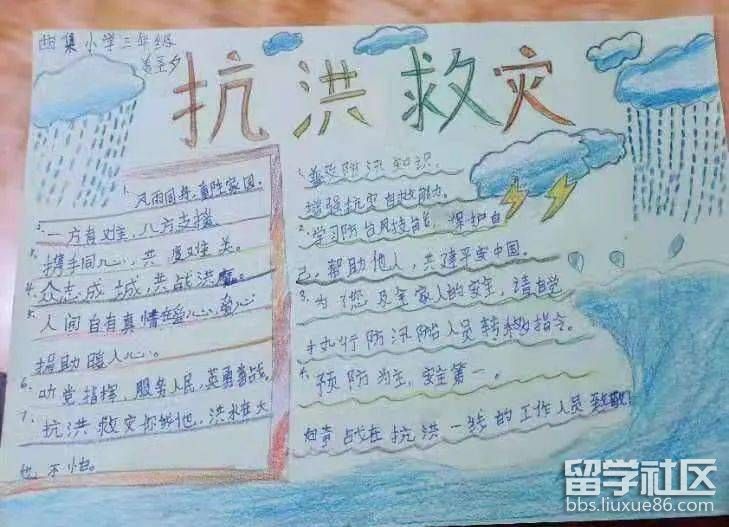 集小学三年级
抗洪救灾
1. 风雨同舟,重建家园。
2. 一方有难,八方支援
3. 携手同心,共渡难关。
4. 众志成城,共战洪魔。
5. 人间自有真情在,爱心
援助暖人心。
6. 听党指挥,服务人民,英勇奋战。
7. 抗洪救灾,洪水在大
也不怕。
1. 普及防汛知识。
增强抗灾自救能力。
2. 学习防台风技能,保护自
己,帮助他人,共建平安中国。
3. 为了您及全家人的安全,请自觉
执行防汛人员转移指令。
4. 预防为主,安全第一。
战在抗洪一线的工作人员致敬
留学社区
bbs.liuxue86.com